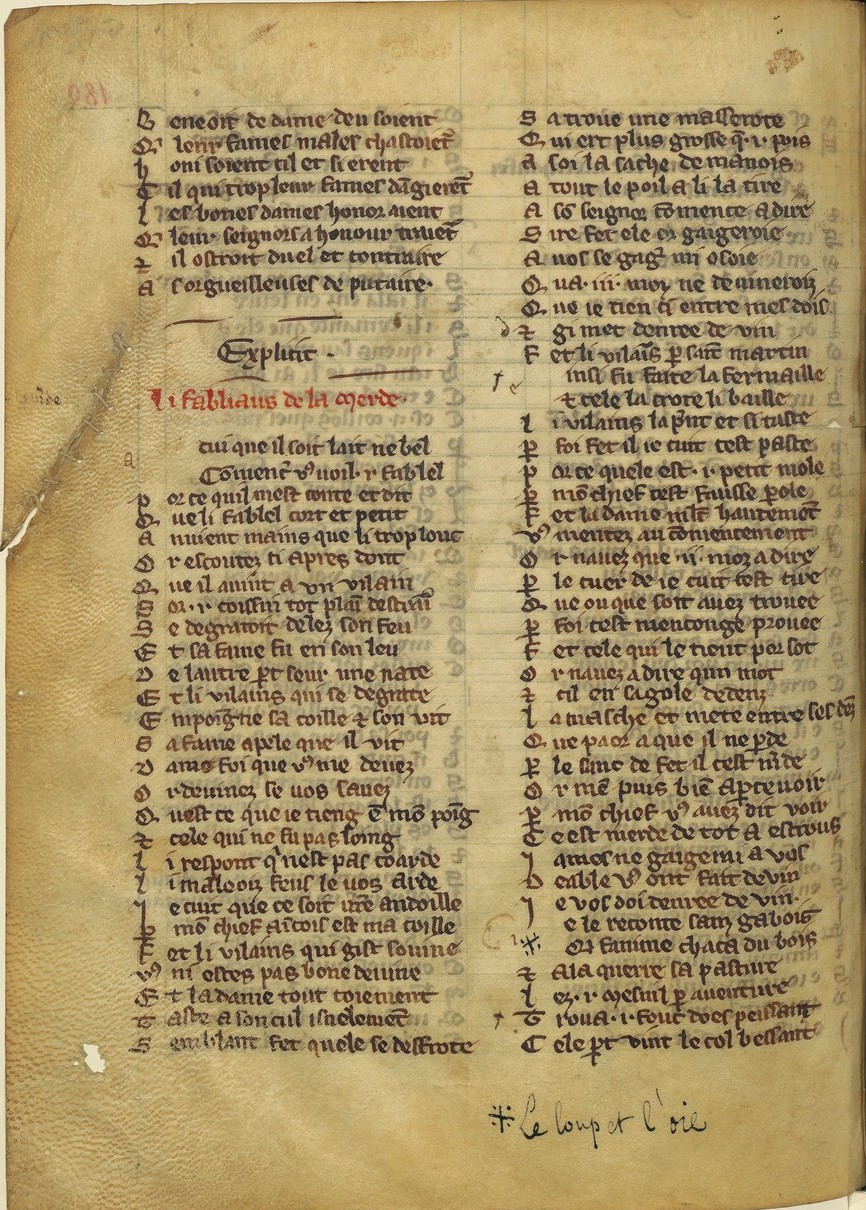 B eneoit de dame deu soient
Q' leur fames males chastoiẽt
h oni soient cil et si erent
C il qui trop leur fames dãgierẽt
l es bones dames honoraient
Q' leur seignors a honour traiẽt
⁊ il ostroit duel et contraire
A s orgueilleuses de putaire.
Explicit.
li fabliaus de la merde.
cui que il soit lait ne bel
Cõmenc̃ vꝰ voil .i. fablel
p or ce quil mest conte et dit
Q ue li fablel cort et petit
A nuient mains que li trop lonc
O r escoutez ci apres dont
Q ue il auint a vn vilain
S or .i. coissin tot plain destrain
S e degratoit delez son feu
E t sa fame fu en son leu
D e lautre ꝑt seur une nate
E t li vilains qui se degrate
E mpoigne sa coille ⁊ son vit
S a fame apele que il vit
D ame foi que vꝰ me deuez
O r deuinez se uos sauez
Q uest ce que ie tieng ẽ mõ poĩg
⁊ cele qui ne fu pas loing
l i respont q' nest pas coarde
l i maleoiz feus le uos arde
J e cuit que ce soit ure andoille
p mõ chief aĩcois est ma coille
F et li vilains qui gist souine
vꝰ ni estes pas bone deuine
E t la dame tout coiement
T aste a son cul isnelemẽt
S emblant fet quele se desfrote
S a troue une masserote
Q ui ert plus grosse q̃ .i. pois
A soi la sache de manois
A tout le poil a li la tire
A sõ seignor cõmence a dire
S ire fet ele cõ gaigeroie
A uos se gagier mi osoie
Q ua .iii. moz ne deuineroiz
Q ue ie tien ci entre mes dois
⁊ gi met denree de vin
F et li vilaĩs ꝑ saĩt martin
insi fu faite la fermaille
⁊ cele la crote li baille
l i vilains la pͥnt et si taste
ꝑ foi fet il ie cuit cest paste
p or ce quele est .i. petit mole
ꝑ mõ chief cest fausse ꝑole
F et la dame mlt hautemẽt
vꝰ mentez au cõmencement
O r nauez que .ii. moz a dire
ꝑ le cuer de ie cuit cest cire
Q ue ou que soit auez trouee
ꝑ foi cest menconge prouee
F et cele qui le tient por sot
O r nauez a dire qun mot
⁊ cil en sa gole dedenz
l a masche et mete entre ses dẽz
Q ue paor a que il ne ꝑde
ꝑ le sanc de fet il cest mͥde
O r mẽ puis biẽ aꝑceuoir
ꝑ mõ chief vꝰ auez dit voir
C e est merde de tot a estrous
J ames ne gaigerai a vos
D eable vꝰ ont fait deuin
J e vos doi denree de vin.
e le reconte sanz gabois
Q famine chaca du bois
⁊ ala querre sa pasture
l ez .i. mesnil ꝑ auenture
T roua .i. fouc does peissant
C ele ꝑt vint le col bessant
※ Le loup et l'oie